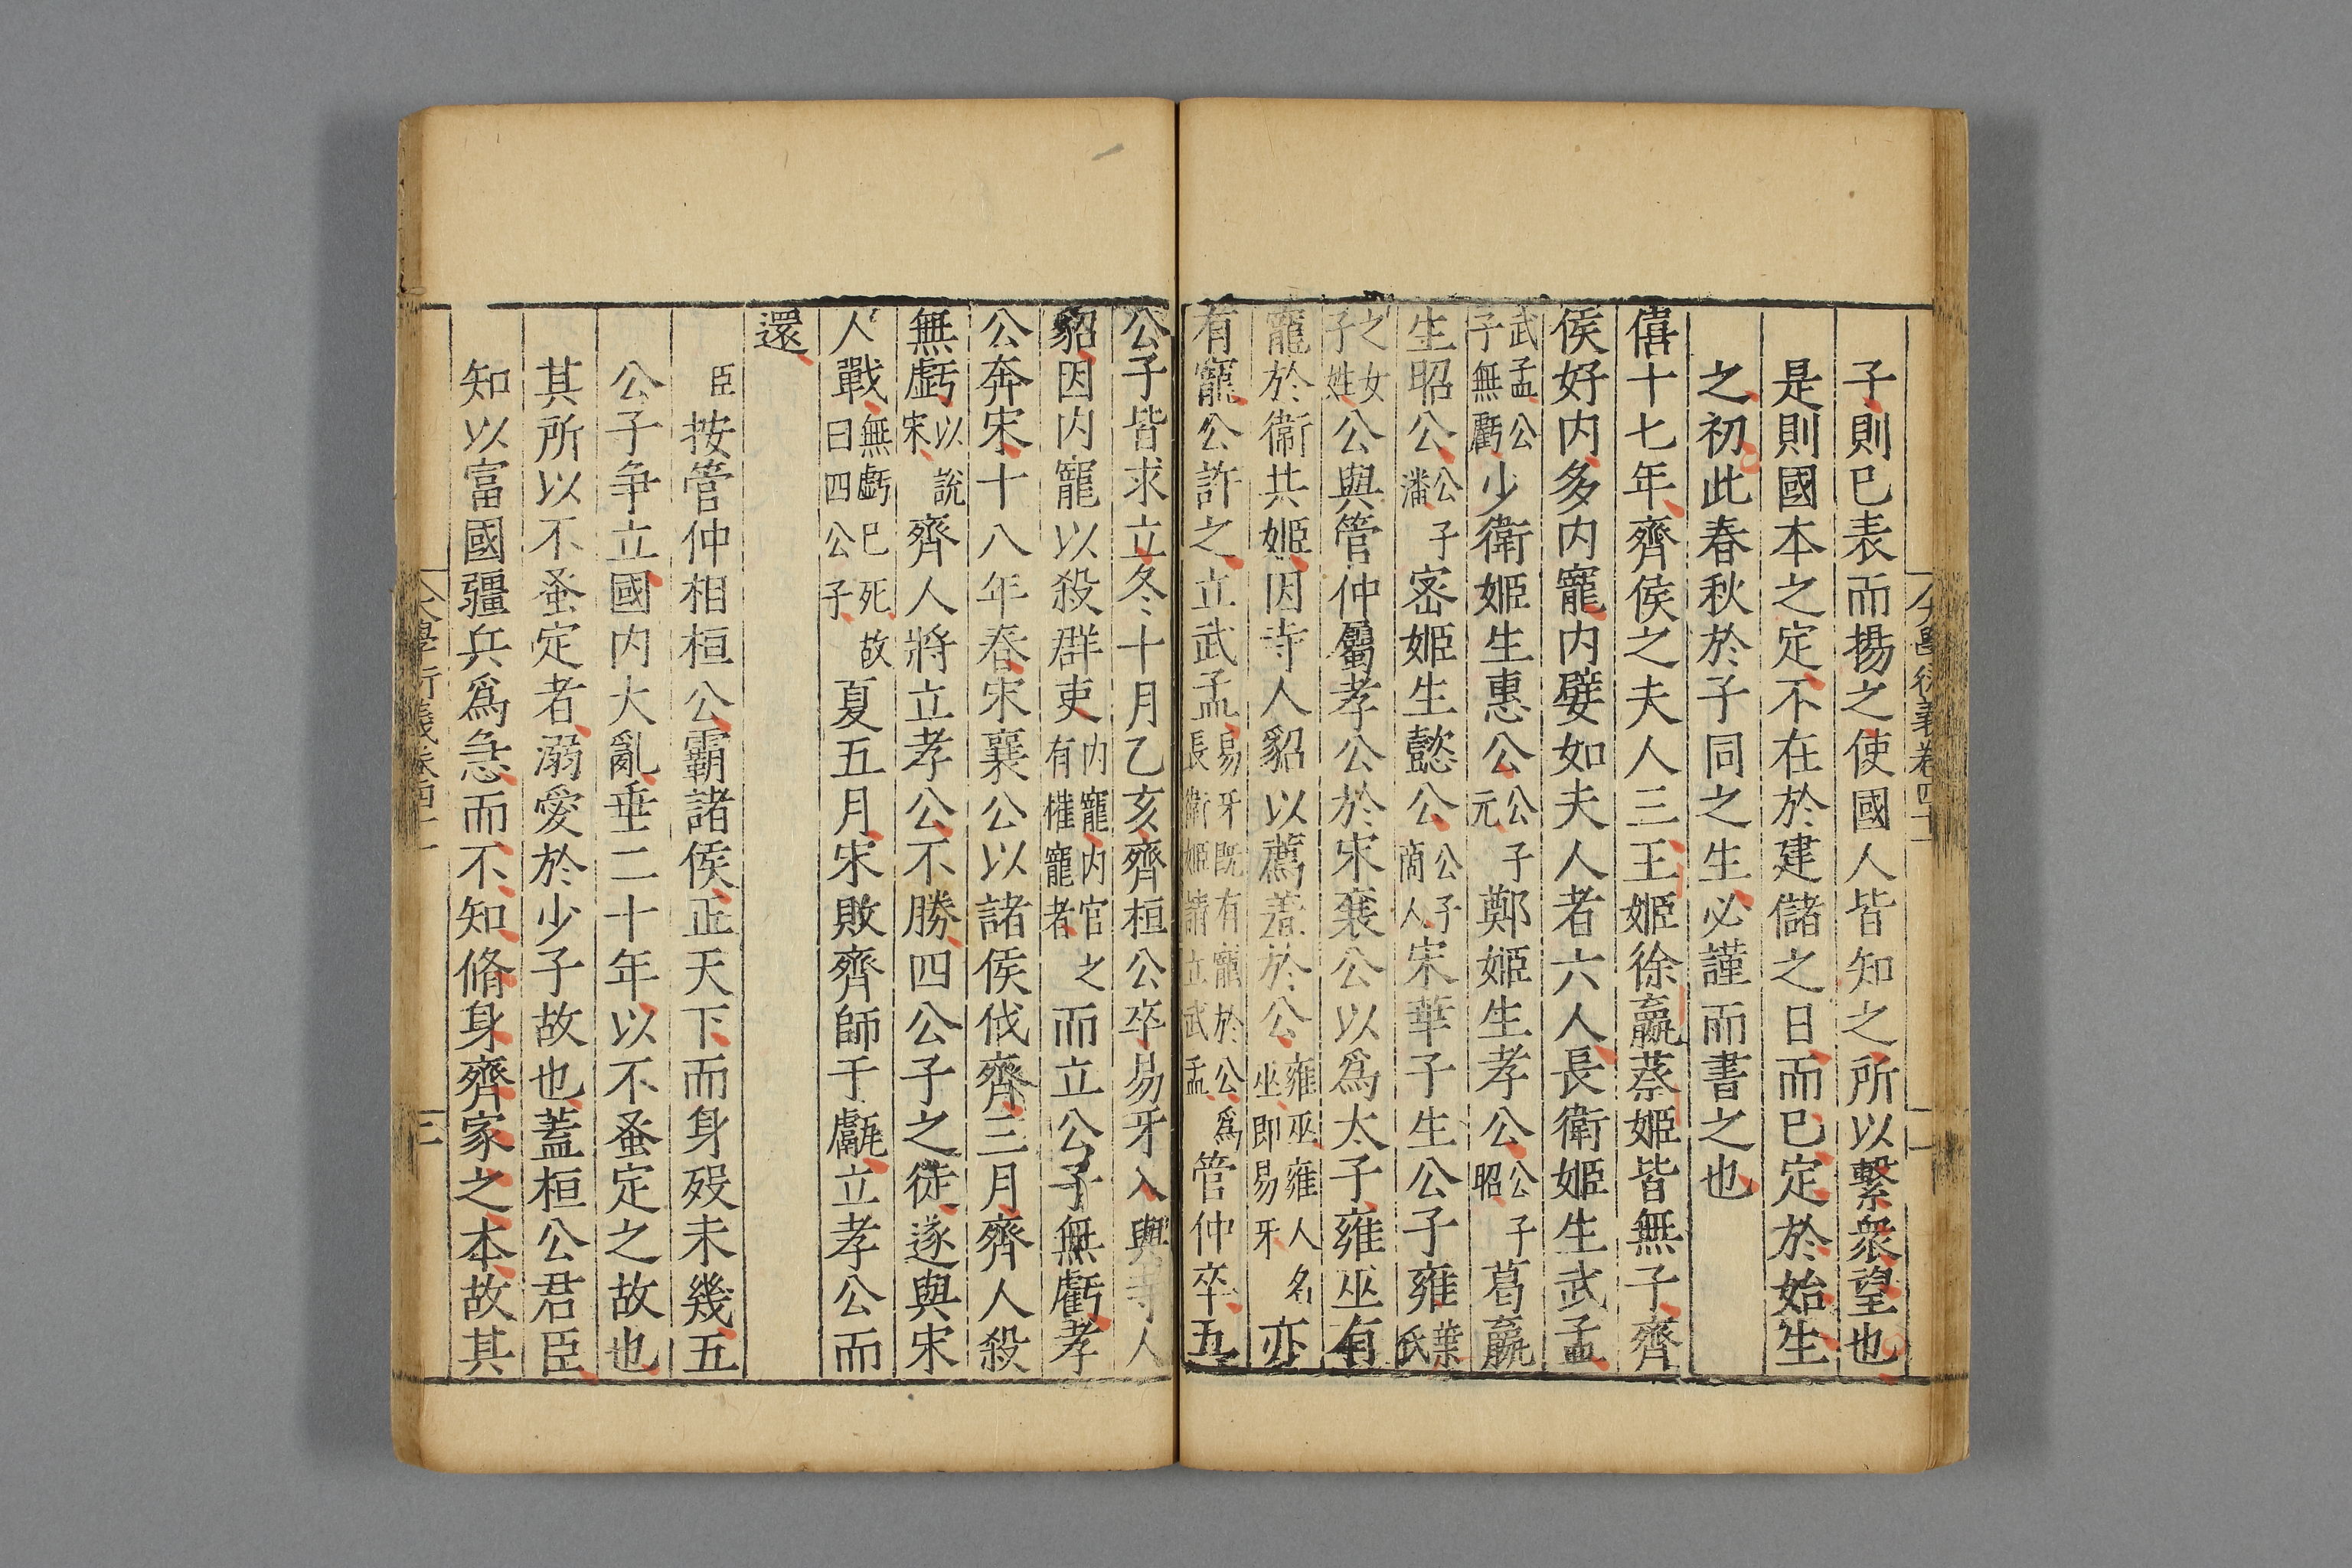 大學衍義卷四十二
子則已表而揚之使國人皆知之所以繫衆望也
是則國本之定不在於建儲之日而已定於始生
之初此春秋於子同之生必謹而書之也
僖十七年齊侯之夫人三王姬徐嬴蔡姬皆無子齊
侯好内多内寵内嬖如夫人者六人長衛姬生武孟
武孟公子無虧少衛姬生惠公公子元鄭姬生孝公公子昭葛嬴
生昭公公子潘密姬生懿公公子商人宋華子生公子雍華氏
之女子姓公與管仲屬孝公於宋襄公以爲太子雍巫有
寵於衛共姬因寺人貂以薦羞於公雍巫雍人名巫即易牙亦
有寵公許之立武孟易牙既有寵於公爲長衛姬請立武孟管仲卒五
公子皆求立冬十月乙亥齊桓公卒易牙入與寺人
貂因内寵以殺群吏内寵内官之有權寵者而立公子無虧孝
公奔宋十八年春宋襄公以諸侯伐齊三月齊人殺
無虧以説宋齊人將立孝公不勝四公子之徒遂與宋
人戰無虧已死故曰四公子夏五月宋敗齊師于甗立孝公而
還
臣按管仲相桓公霸諸侯正天下而身歿未幾五
公子争立國内大亂垂二十年以不蚤定之故也
其所以不蚤定者溺愛於少子故也蓋桓公君臣
知以富國疆兵爲急而不知脩身齊家之本故其
大學衍義卷四十二
三